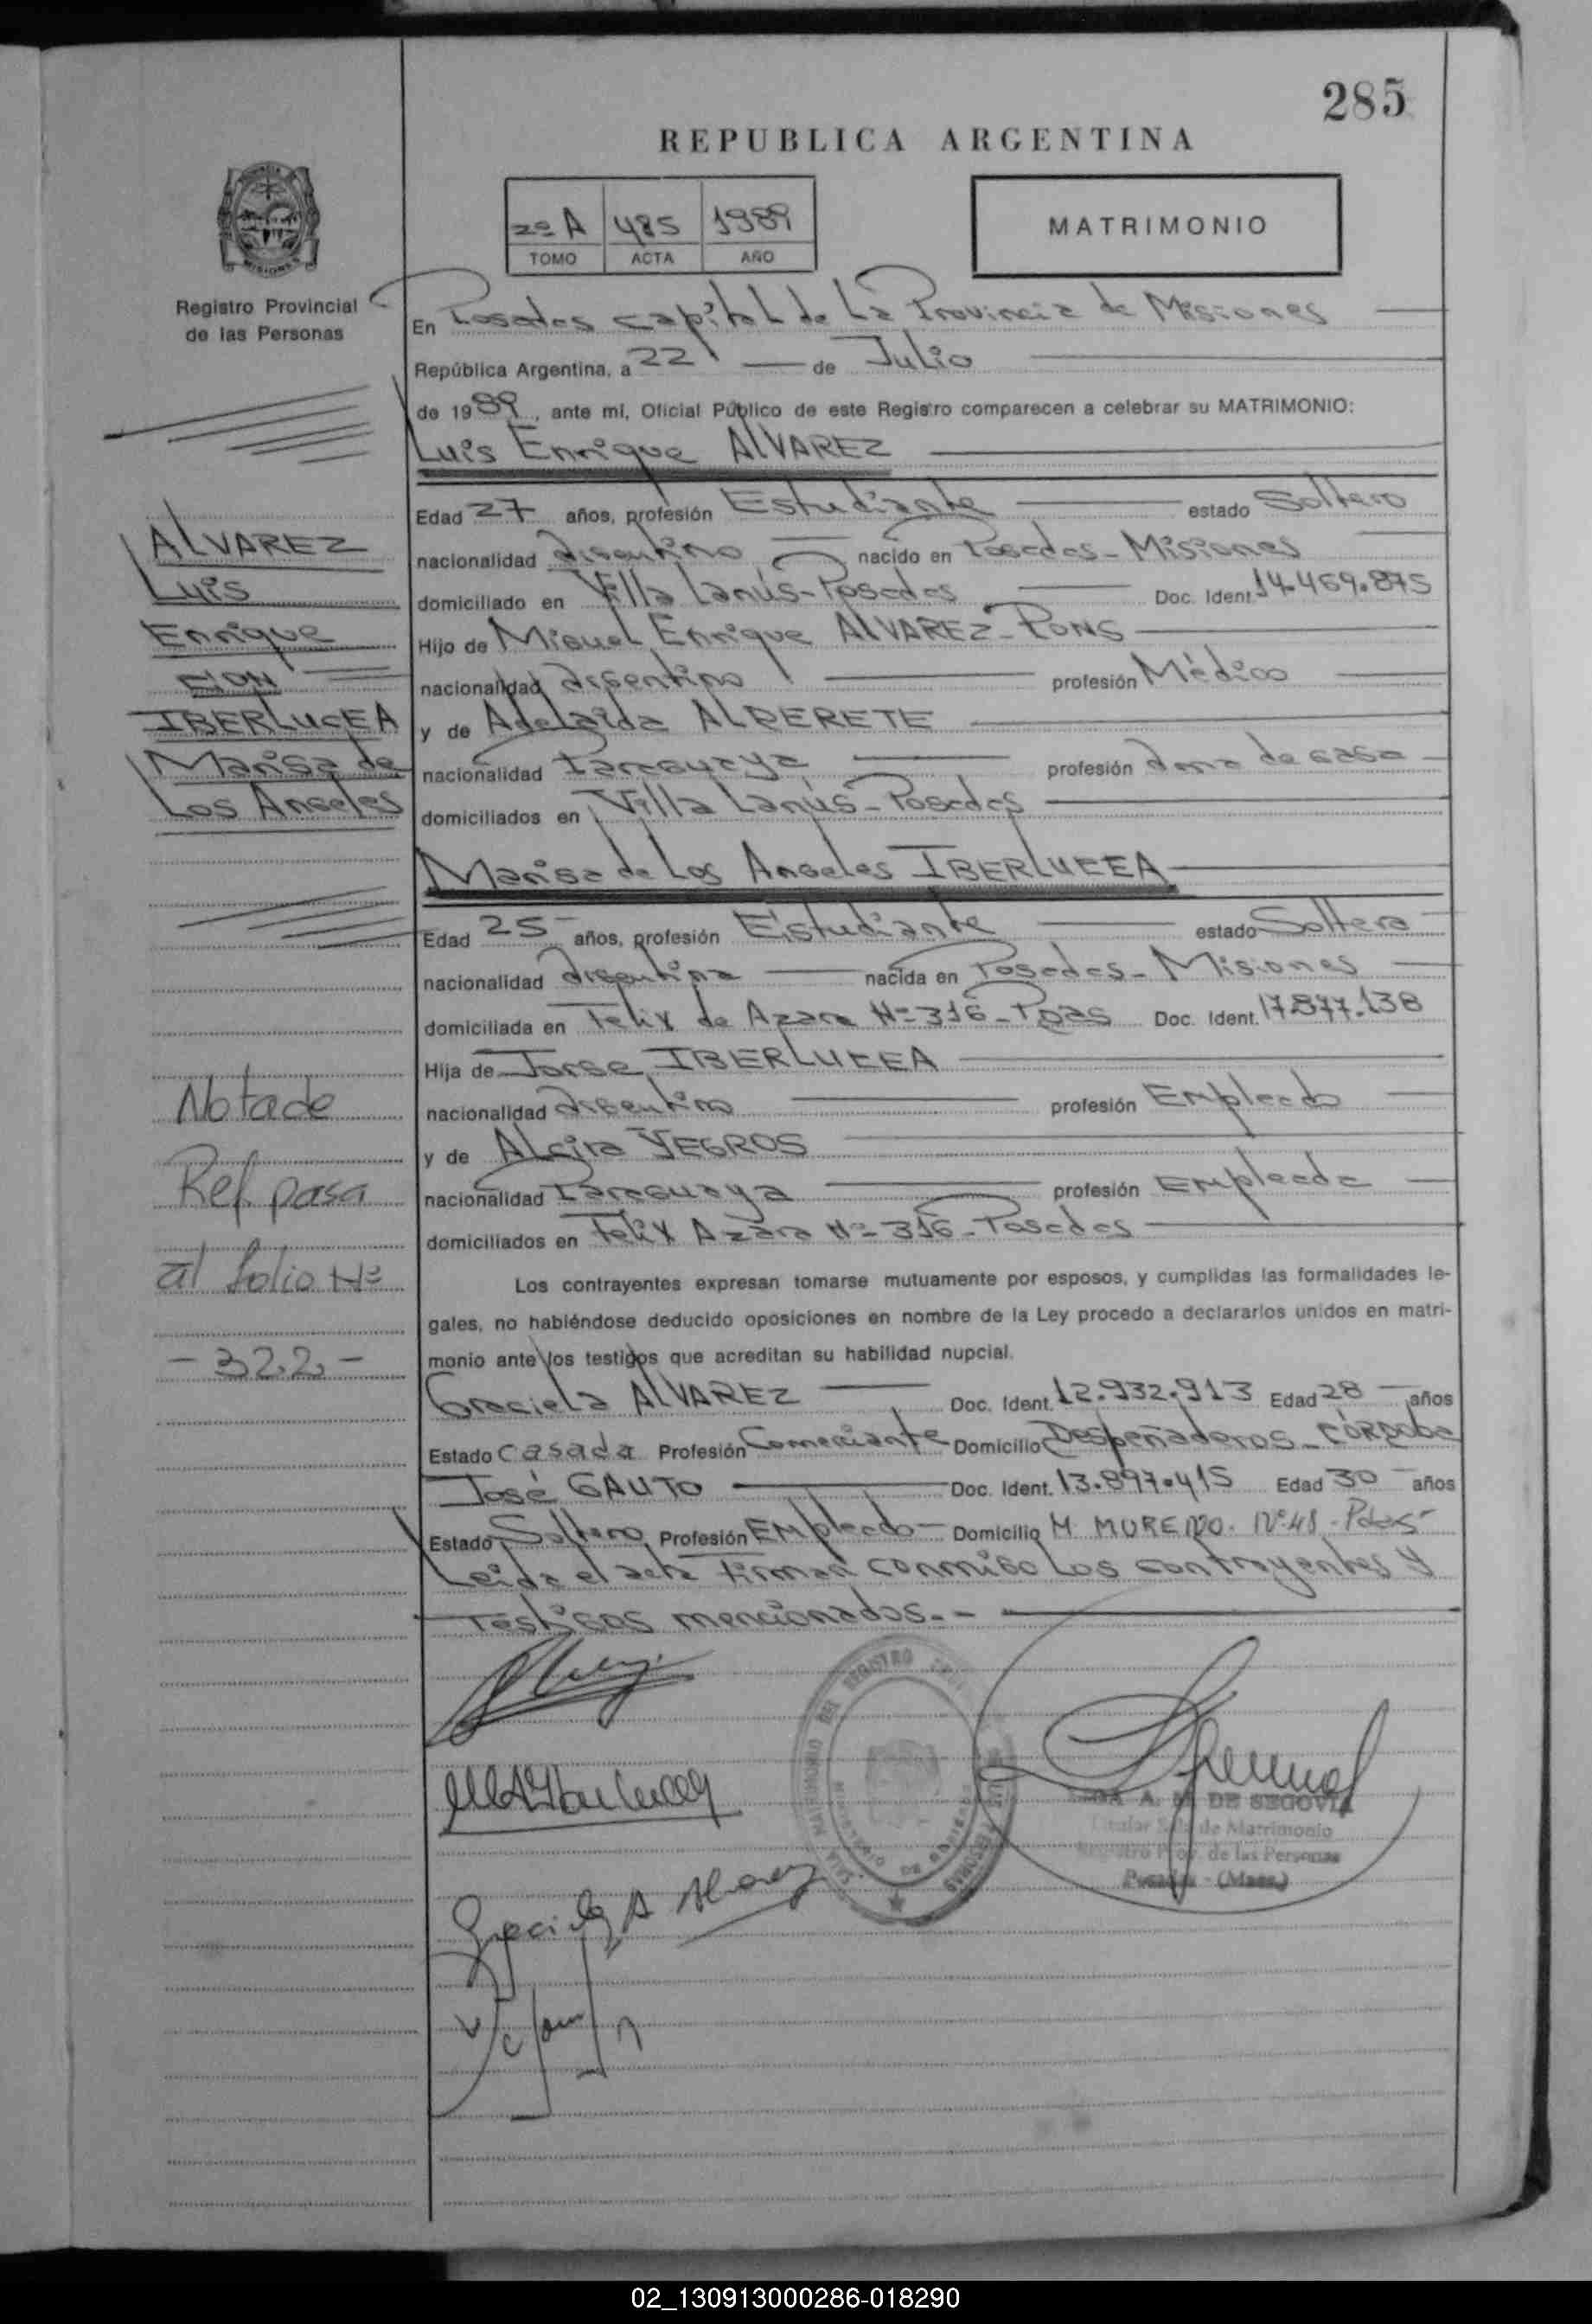 285
REPUBLICA ARGENTINA
2º A 485 1989
TOMO ACTA AÑO
MATRIMONIO
MISIONES
Registro Provincial
de las Personas
En Posadas capital de La Provincia de Misiones
República Argentina, a 22 de Julio
de 1989, ante mi, Oficial Público de este Registro comparecen a celebrar su MATRIMONIO:
Luis Enrique ALVAREZ
Edad 27 años, profesión Estudiante estado Soltero
nacionalidad Argentino nacido en Posadas - Misiones
domiciliado en Villa Lanús - Posadas Doc. Ident. 14.469.875
Hijo de Miguel Enrique ALVAREZ - PONS
nacionalidad Argentino profesión Médico
y de Adelaida ALDERETE
nacionalidad Paraguaya profesión Ama de casa
domiciliados en Villa Lanús - Posadas
Marisa de Los Angeles IBERLUCEA
Edad 25 años, profesión Estudiante estado Soltera
nacionalidad Argentina nacida en Posadas - Misiones
domiciliada en Felix de Azara Nº 316 - Pdas Doc. Ident. 17.877.138
Hija de Jorge IBERLUCEA
nacionalidad Argentino profesión Empleado
y de Alcira YEGROS
nacionalidad Paraguaya profesión Empleada
domiciliados en Felix Azara Nº 316 - Posadas
Los contrayentes expresan tomarse mutuamente por esposos, y cumplidas las formalidades le-
gales, no habiéndose deducido oposiciones en nombre de la Ley procedo a declararlos unidos en matri-
monio ante los testigos que acreditan su habilidad nupcial.
Graciela ALVAREZ Doc. Ident. 12.932.913 Edad 28 años
Estado Casada Profesión Comerciante Domicilio Despeñaderos - CÓRDoba
José GAUTO Doc. Ident. 13.897.415 Edad 30 años
Estado Soltero Profesión Empleado Domicilio M. MORENO. Nº 48 - Pdas
Leida el acta Firman conmigo Los contrayentes y
Testigos mencionados.-
ALVAREZ
Luis
Enrique
CON
IBERLUCEA
Marisa de
Los Angeles
Nota de
Ref. pasa
al folio Nº
- 322 -
Graciela A Alvarez
SALA MATRIMONIO DEL REGISTRO
A. M. DE SEGOVIA
Titular Sala de Matrimonio
Registro Prov. de las Personas
Posadas - (Mnes.)
02_130913000286-018290